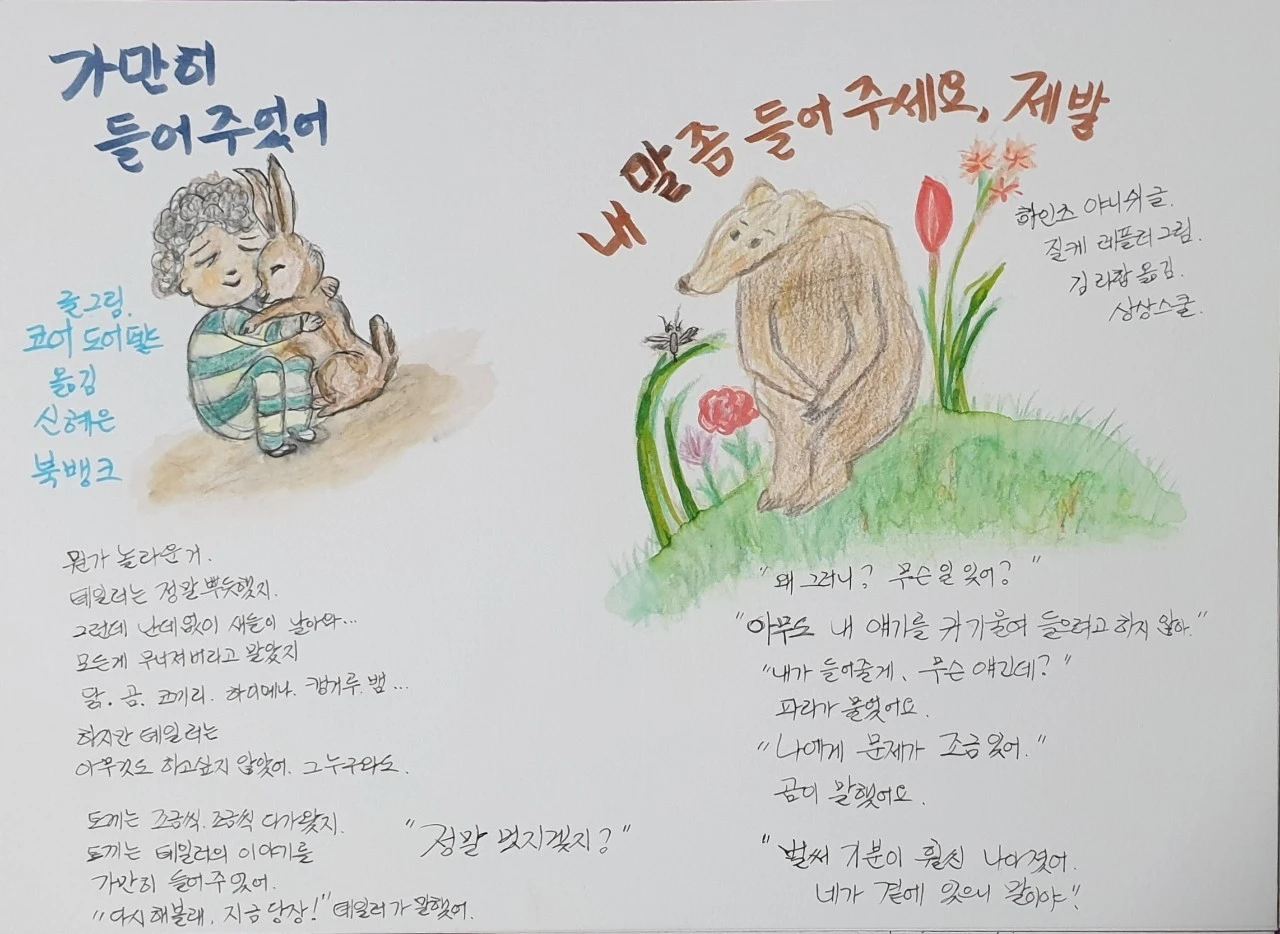 가만히
들어주었어
글그림.
코어 도어펠드
옮김
신혜은
북뱅크
뭔가 놀라운거.
테일러는 정말 뿌듯했지.
그런데 난데없이 새들이 날아와...
모든게 무너져버리고 말았지
닭. 곰. 코끼리. 하이에나. 캥거루. 뱀...
하지만 테일러는
아무것도 하고싶지 않았어. 그누구와도.
토끼는 조금씩. 조금씩 다가왔지.
토끼는 테일러의 이야기를
가만히 들어주었어.
"다시해볼래, 지금당장!" 테일러가 말했어.
"정말 멋지겠지?"
내 말 좀 들어 주세요, 제발
하인츠 야니쉬 글.
질케 레플러 그림.
김라합 옮김.
상상스쿨.
"왜 그러니? 무슨일 있어?"
"아무도 내 얘기를 귀기울여 들으려고 하지 않아."
"내가 들어줄게, 무슨 얘긴데?"
파리가 물었어요.
"나에게 문제가 조금있어."
곰이 말했어요.
"벌써 기분이 훨씬 나아졌어.
네가 곁에 있으니 말이야".